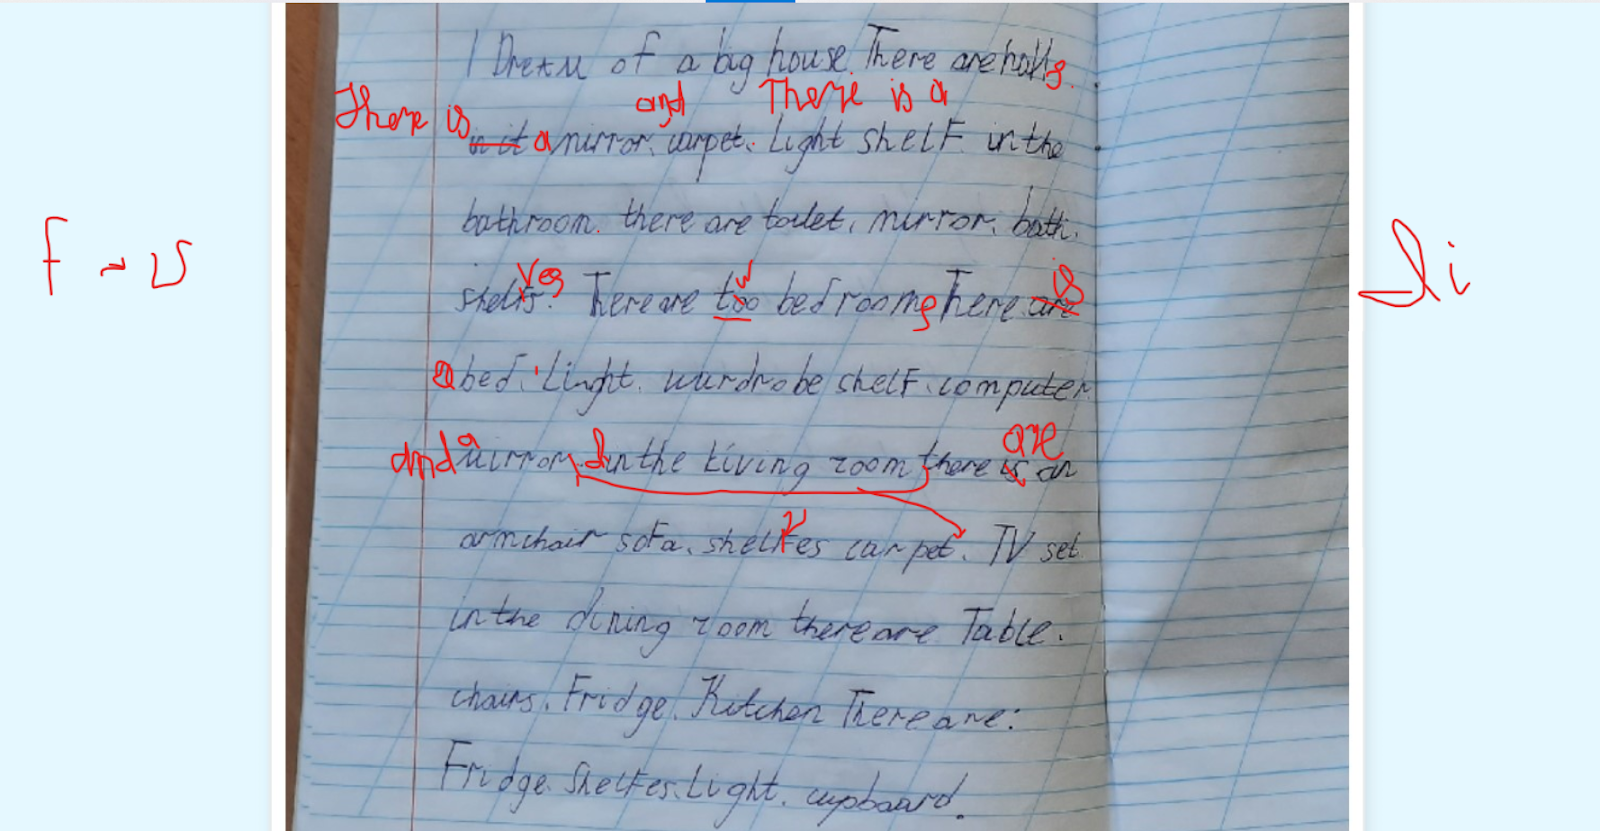 I Dream of a big house. There are halls.
There is and There is a
in it a mirror, carpet. Light shelf in the
bathroom. there are toilet, mirror, bath.
F - v
Di
ves v is
shelfs. There are too bedrooms There are
a bed. Linght. wardrobe shelf. computer
are
and a mirror. In the Living room there is an
v
armchair sofa. shelfes carpet. TV set
in the dining room there are Table.
chairs. Fridge. Kitchen There are:
Fridge. Shelfes. Light. cupboard.